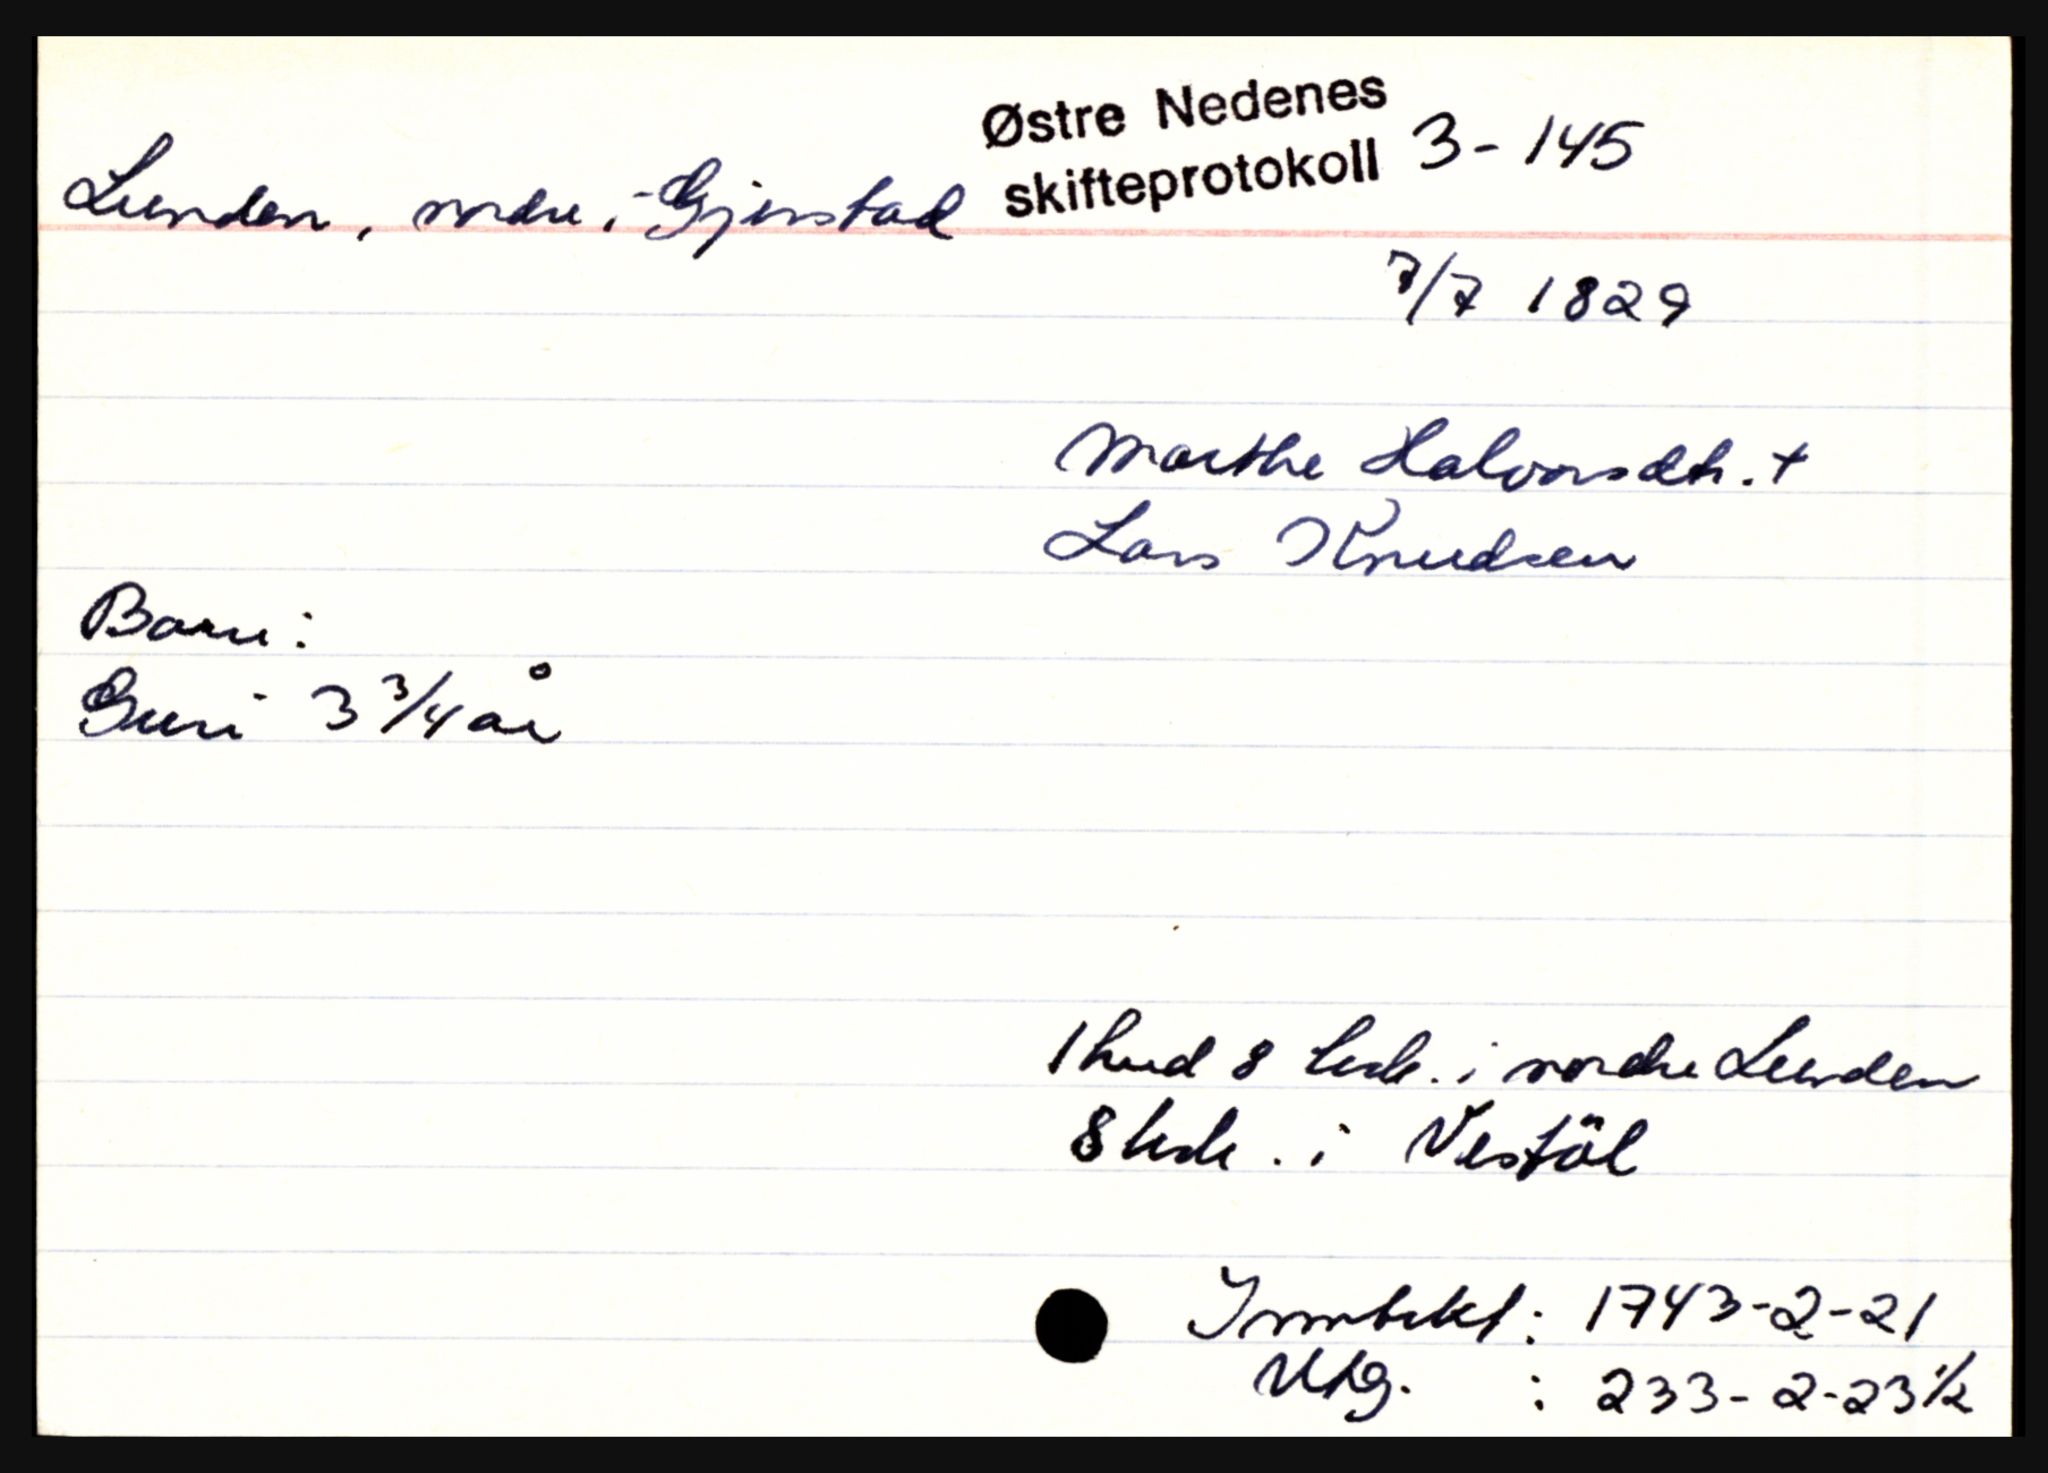 Østre Nedenes
skifteprotokoll 3-145
Lunden, nordre i Gjerstad
7/7 1829
Marthe Halvorsdtr. +
Lars Knudsen
Barn:
Guri 3 3/4 år
1 hud 8 kalvsk. i nordre Lunden
8 i Vestøl
Inntekt: 1743-2-21
Utg. : 233-2-23 1/2